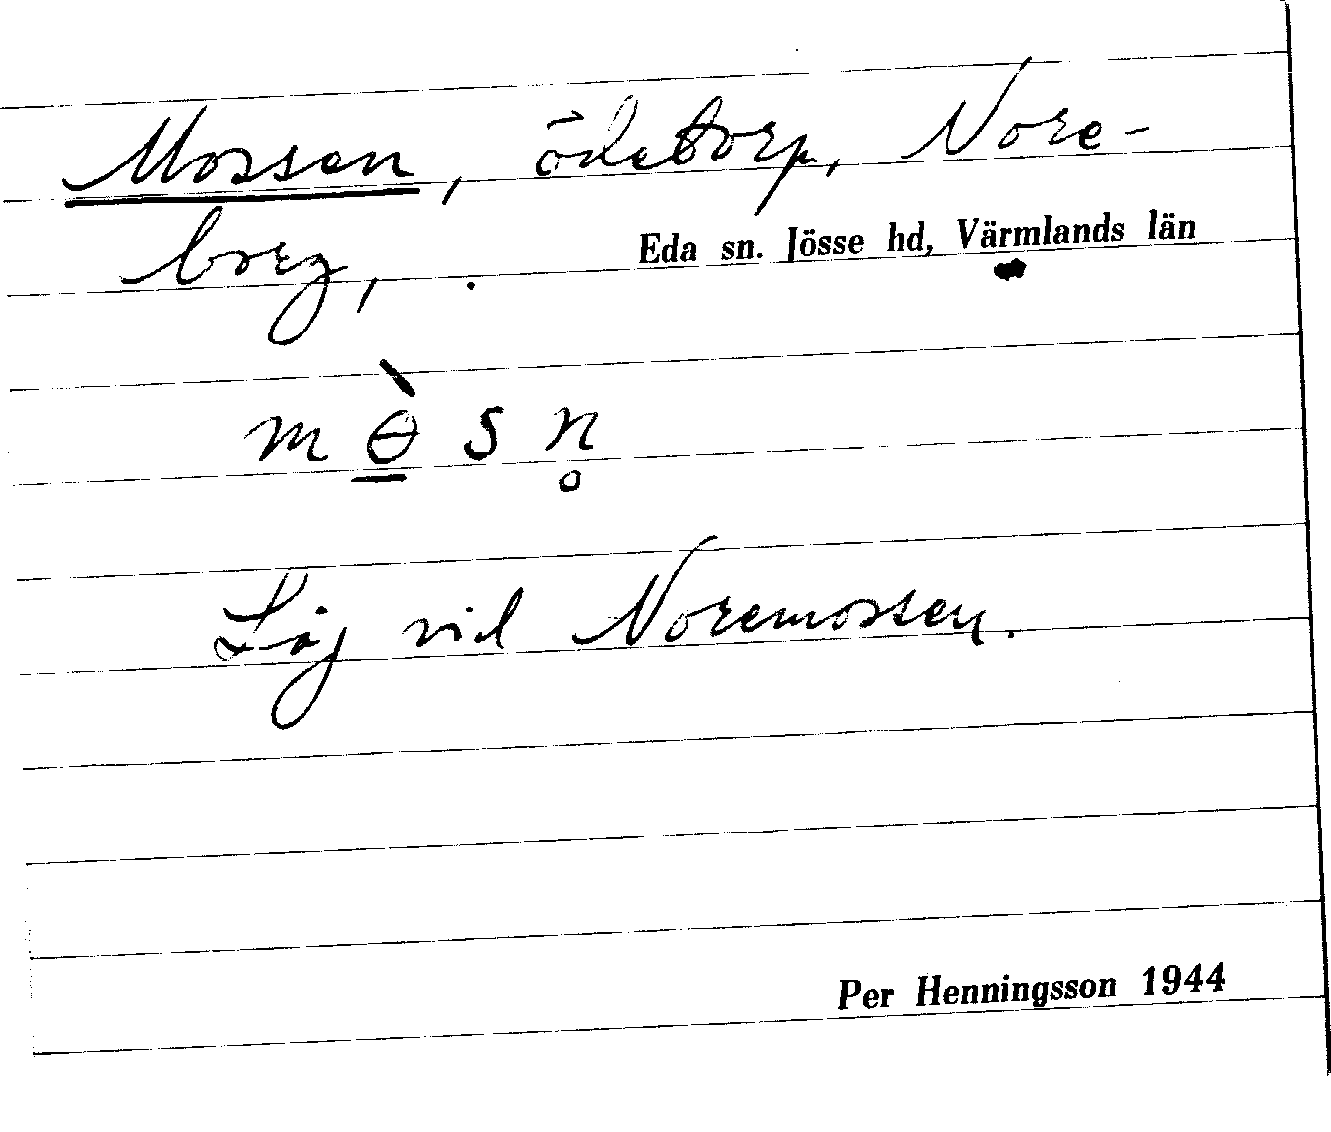 Mossen, ödetorp, Nore-
borg, .
Eda sn. Jösse hd, Värmlands län
m ɵ̠̀ s n̥
Låg vid Noremossen.
Per Henningsson 1944